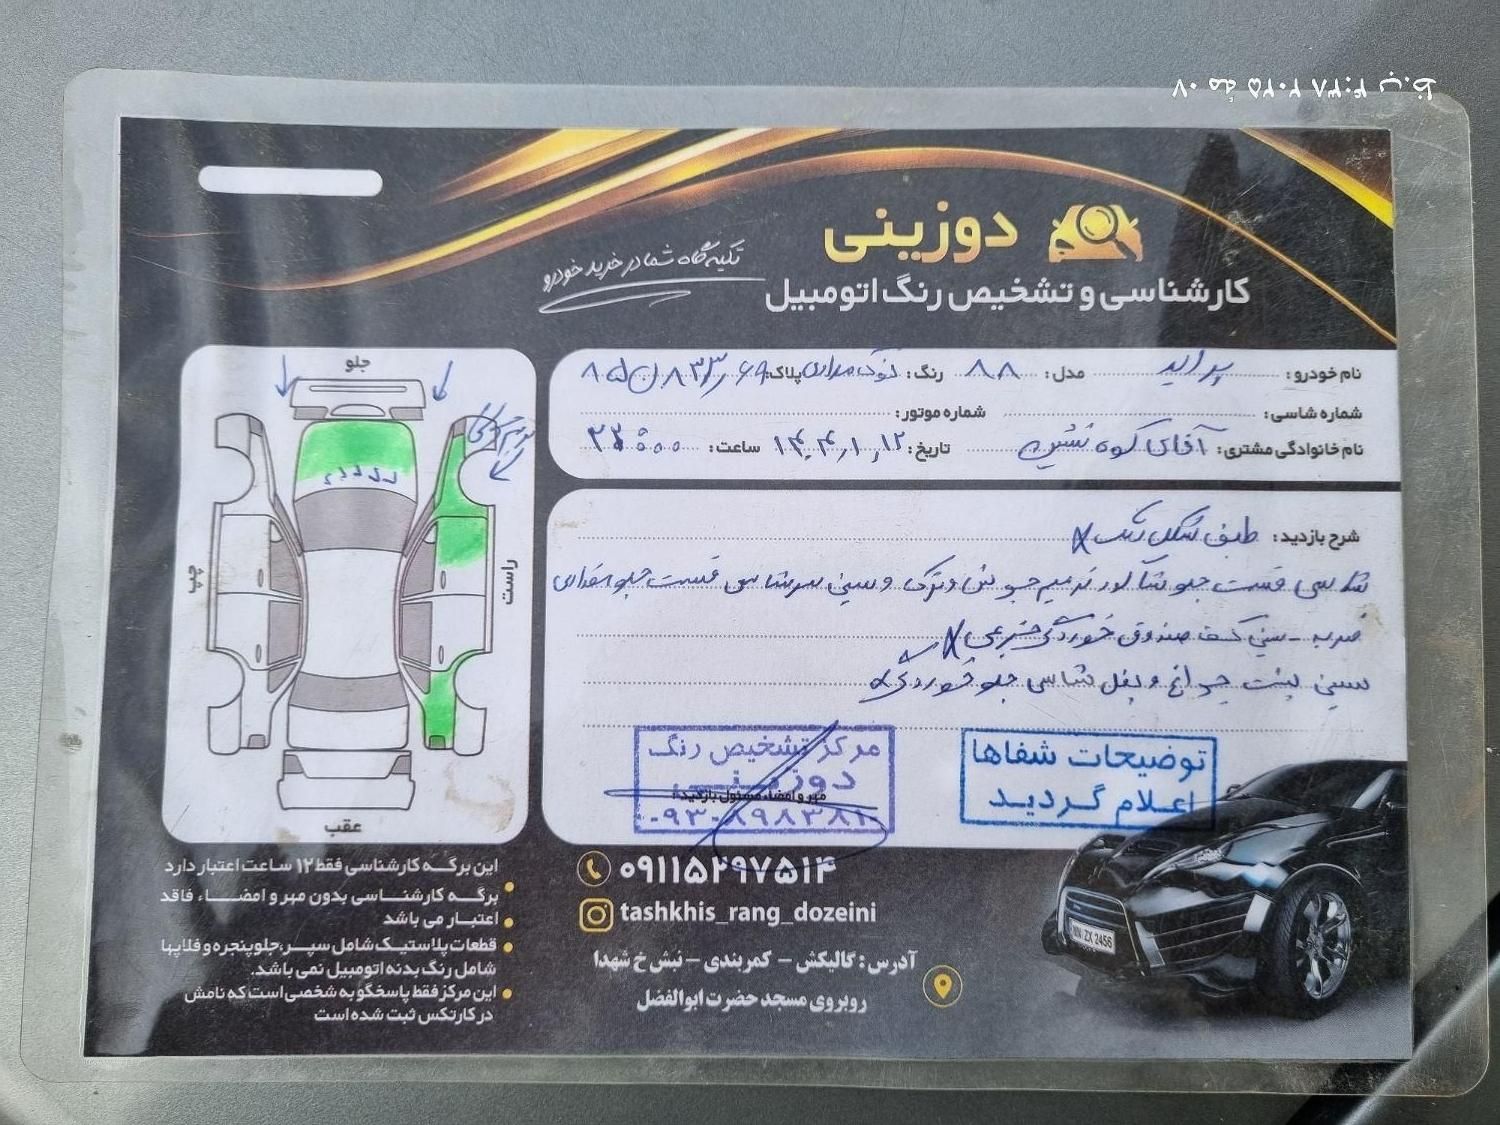 ۰۷ مهٔ ۲۰۲۵ ۴:۳۸ ب.ظ
دوزینی
تکیه گاه شما در خرید خودرو
کارشناسی و تشخیص رنگ اتومبیل
نام خودرو: پراید مدل: ۸۸ رنگ: پلاک:
شماره شاسی: شماره موتور:
نام خانوادگی مشتری: آقای کوه نشین تاریخ: ۱۴۰۴٫۱٫۱۲ ساعت:
شرح بازدید:
شاسی قسمت جلو شاگرد ترمیم جوش و ترک و سینی سرشاسی قسمت جلو
ضربه - سینی کف صندوق خوردگی جزیی
سینی پشت چراغ و بغل شاسی جلو خوردگی
توضیحات شفاها
اعلام گردید
مرکز تشخیص رنگ
دوزینی
مهر و امضاء مسئول بازدید:
جلو
راست
چپ
عقب
این برگه کارشناسی فقط ۱۲ ساعت اعتبار دارد
برگه کارشناسی بدون مهر و امضاء فاقد
اعتبار می باشد
قطعات پلاستیک شامل سپر، جلوپنجره و فلاپها
شامل رنگ بدنه اتومبیل نمی باشد.
این مرکز فقط پاسخگو به شخصی است که نامش
در کارتکس ثبت شده است
۰۹۱۱۵۲۹۷۵۱۴
tashkhis_rang_dozeini
آدرس: گالیکش – کمربندی – نبش خ شهدا
روبروی مسجد حضرت ابوالفضل
NN ZX 2456